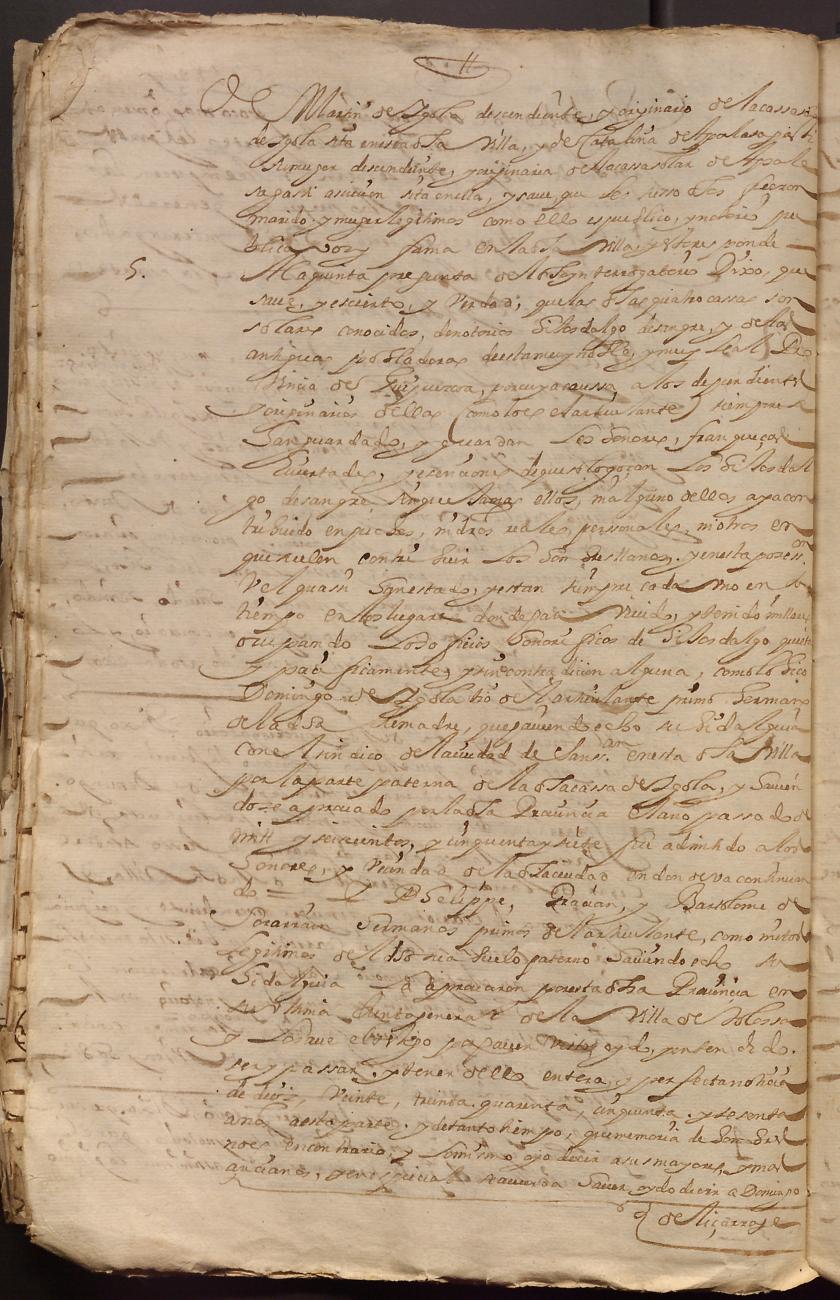 de Martin de Ygola descendiente, y originario de la cassa
de Ygola sita en esta dha Villa, y de Catalina de
su muger descendiente, y originaria de la cassa solar de
sagasti assi sita en ella, y saue, que los suso dhos fueron
marido y muger legitimos como ello es publico, y notorio pu
blica voz y fama en la dha Villa, y
5. A la quinta pregunta del dho ynterrogatorio Dixo, que
saue, y es cierto, y verdad, que las dhas quatro cassas son
solares conocidos, de notorios hijosdalgo de sangre, y de las
antiguas pobladoras de esta muy noble, y muy leal Pro
vincia de Guipuzcoa, por cuya caussa, a los dependientes
y originarios dellas (como lo es el articulante) siempre se
han guardado, y guardan los honores, franqueças
libertades, y esenciones de que solo goçan los hijosdal
go de sangre, sin que jamas ellos, ni alguno dellos aya con
tribuido en pechos, ni dros reales, personales, ni otros en
que suelen contribuir los hombres llanos, y en esta posess.on
Vel quasi han estado, y estan siempre cada uno en su
tiempo en los lugares donde han viuido, y tenido millares
ocupando los oficios honorificos de hijosdalgo quieta
y pacificamente, y sin contradicion alguna, como lo hiço
Domingo de Ygola tio del articulante primo hermano
de la dha su madre, que hauiendo echo su hidalguia
con el sindico de la ciudad de San s.an en esta dha Villa
por la parte paterna de la dha cassa de Ygola, y hauien
dose aprouado por la dha Prouincia el año passado de
mill y seiscientos, y cinquenta y siete fue admitido a los
honores, y vecindad de la dha ciudad en donde va continuan
do = Y D Felippe, D Juan, y Bartholome de
hermanos primos del articulante, como nietos
legitimos de abuelo paterno hauiendo echo su
hidalguia la aprouaron por esta dha Prouincia en
su vltima Junta general de la Villa de Tolossa
y lo saue el testigo por hauer visto, oydo, y entendido
ser y passar y tener dello entera, y perfecta noticia
de diez, veinte, treinta, quarenta, cinquenta y sesenta
años a esta parte y de tanto tiempo, que memoria de hombres
no es en contrario, y lo mismo oyo decir a sus mayores, y mas
ancianos, y en especial se acuerda hauer oydo decir a Domingo
de Liçarraga